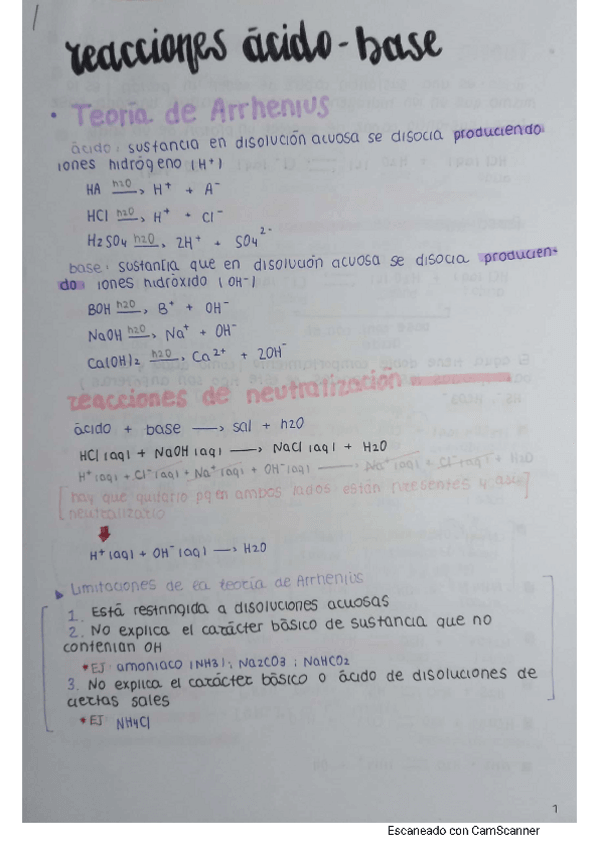 reacciones ácido-base
• Teoría de Arrhenius
ácido: sustancia en disolución acuosa se disocia produciendo
iones hidrógeno (H⁺)
HA —h2O→ H⁺ + A⁻
HCl —h2O→ H⁺ + Cl⁻
H₂SO₄ —h2O→ 2H⁺ + SO₄²⁻
base: sustancia que en disolución acuosa se disocia producien-
do iones hidróxido (OH⁻)
BOH —h2O→ B⁺ + OH⁻
NaOH —h2O→ Na⁺ + OH⁻
Ca(OH)₂ —h2O→ Ca²⁺ + 2OH⁻
reacciones de neutralización
ácido + base → sal + h2O
HCl (aq) + NaOH (aq) → NaCl (aq) + H2O
H⁺(aq) + Cl⁻(aq) + Na⁺(aq) + OH⁻(aq) → Na⁺(aq) + Cl⁻(aq) + H2O
[hay que quitarlo pq en ambos lados están presentes y así]
neutralizarlo
H⁺(aq) + OH⁻(aq) → H2O
▶ Limitaciones de la teoría de Arrhenius
1. Está restringida a disoluciones acuosas
2. No explica el carácter básico de sustancia que no
contenían OH
*EJ: amoniaco (NH3); Na2CO3; NaHCO2
3. No explica el carácter básico o ácido de disoluciones de
ciertas sales
*EJ NH4Cl
1
Escaneado con CamScanner